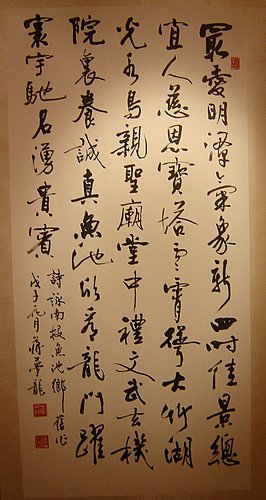 最愛明潭氣象新四時佳景總
宜人慈恩寶塔雲霄聳大竹湖
光水鳥親聖廟堂中禮文武玄機
院裏養誠真魚池欣看龍門躍
寰宇馳名湧貴賓
詩詠南投魚池鄉 舊作
戊子元月蔣夢龍